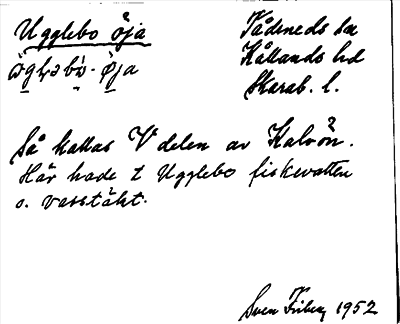 Ugglebo öja
Tådeneds sn
Kållands hd
Skarab. l.
Så kallas V delen av Kalvön.
Här hade t Ugglebo fiskevatten
o. vasstäkt.
Sven Friberg 1952